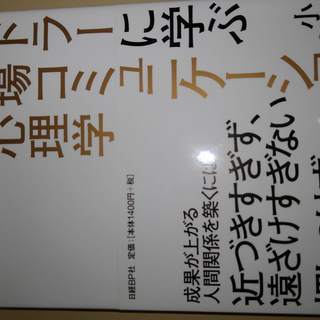 ドラーに学ぶ
場コミュニケーショ
心理学
小
成果が上がる
人間関係を築くには
近づきすぎず、
遠ざけすぎない
日経BP社 定価：[本体1400円+税]